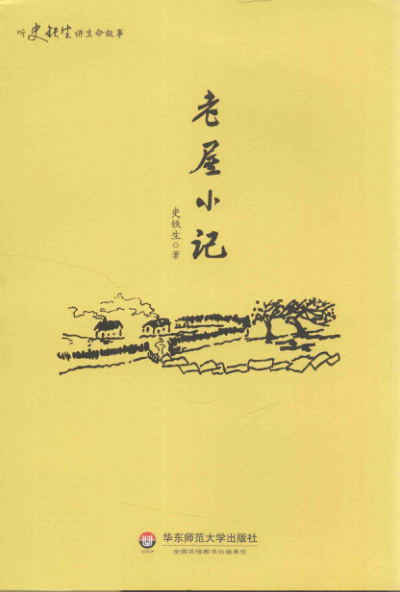 听史铁生讲生命故事
老屋小记
史铁生◎著
华东师范大学出版社
全国百佳图书出版单位